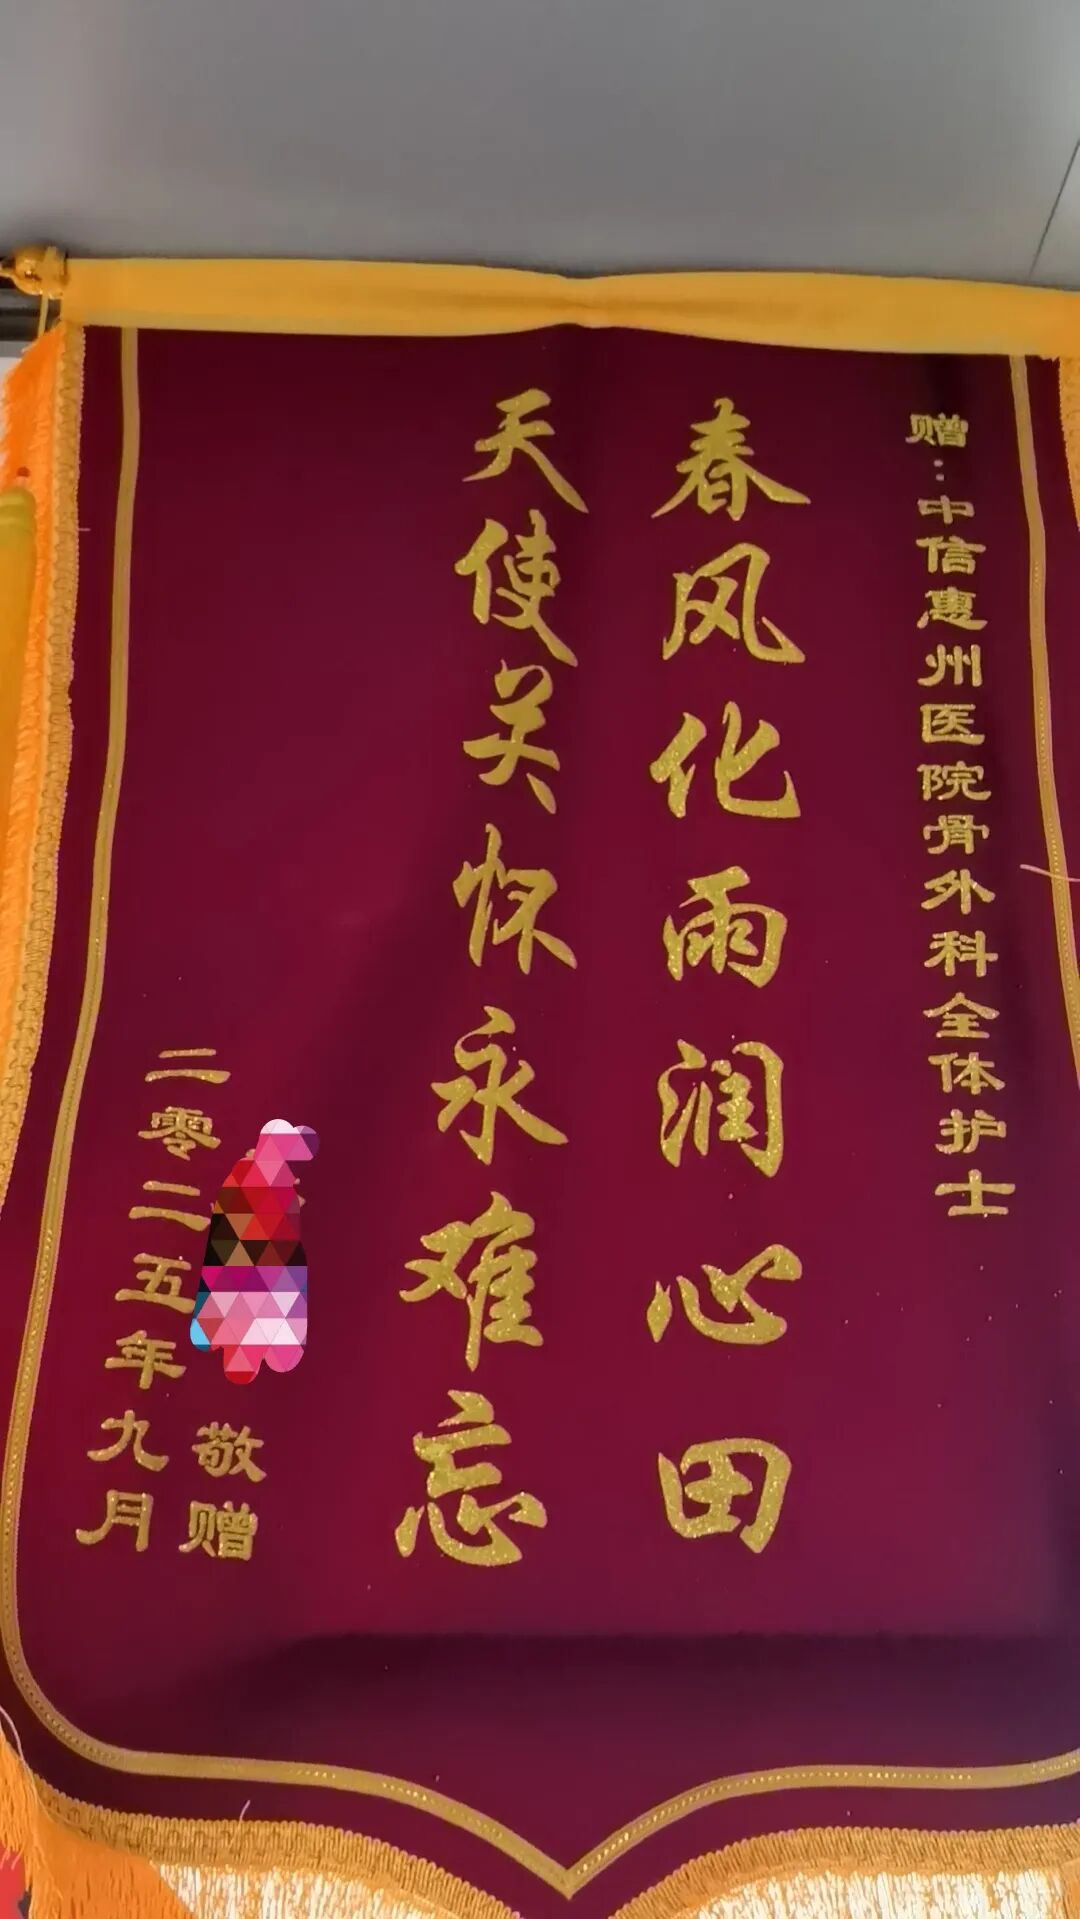 赠：中信惠州医院骨外科全体护士
春风化雨润心田
天使关怀永难忘
敬赠
二零二五年九月